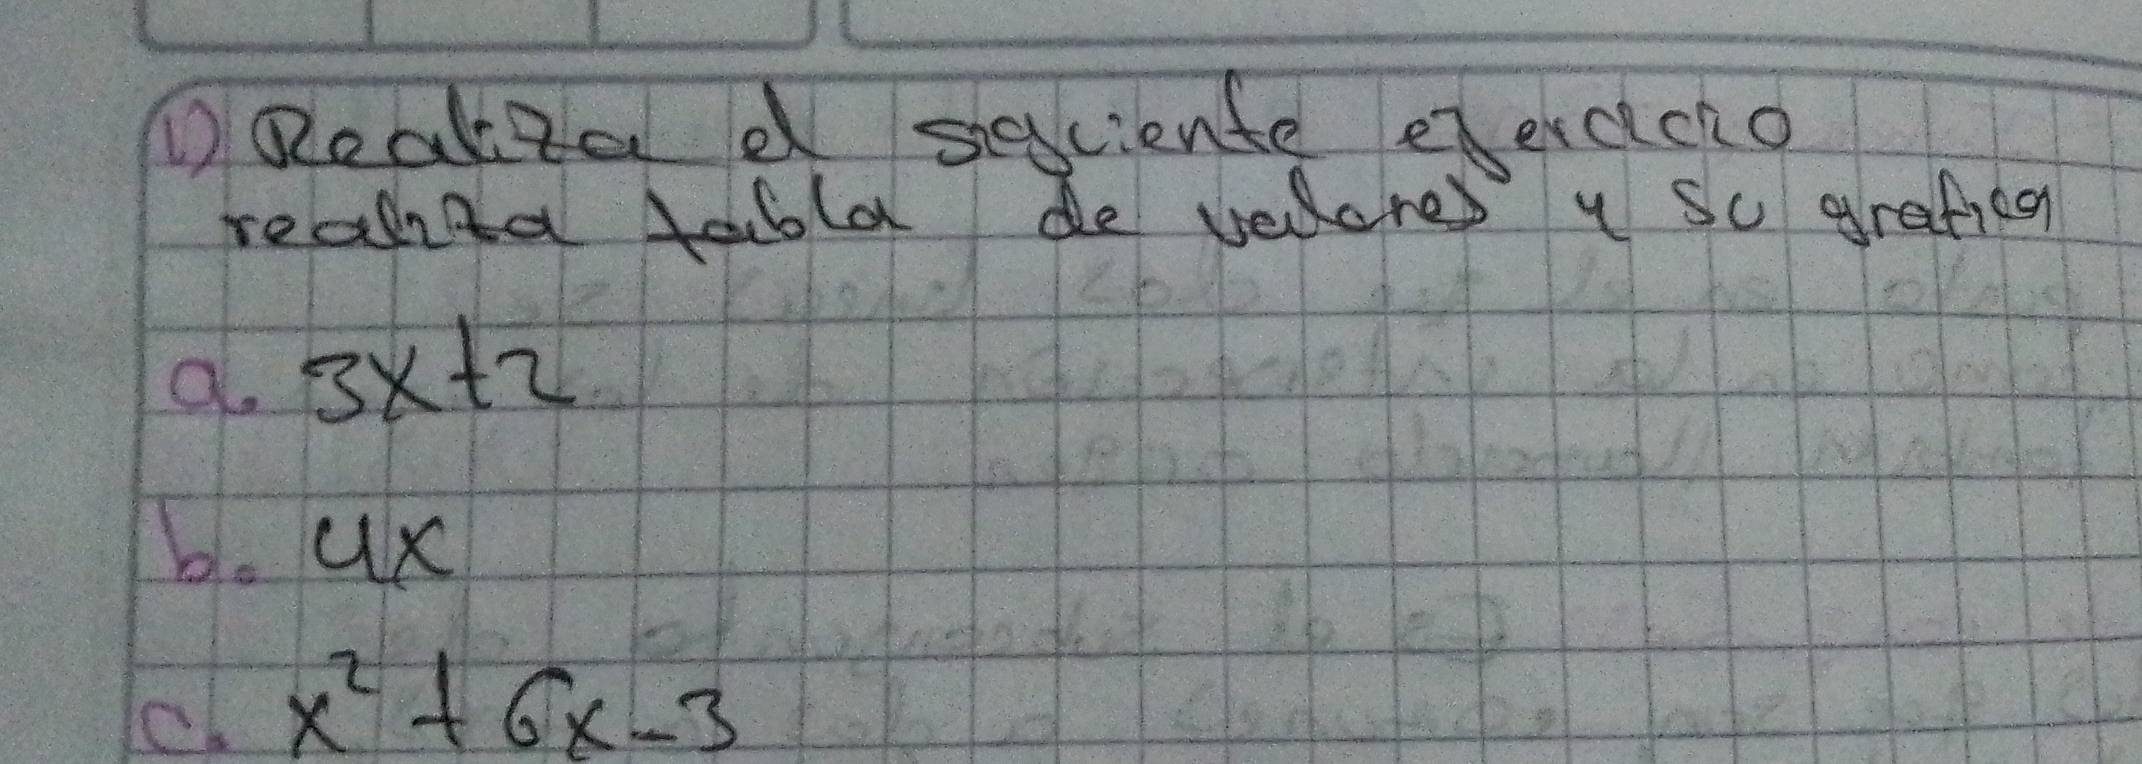 1) Realiza el siguiente ejercicio
realiza tabla de valores y su grafica
a. 3x+2
b. 4x
c. x² + 6x - 3